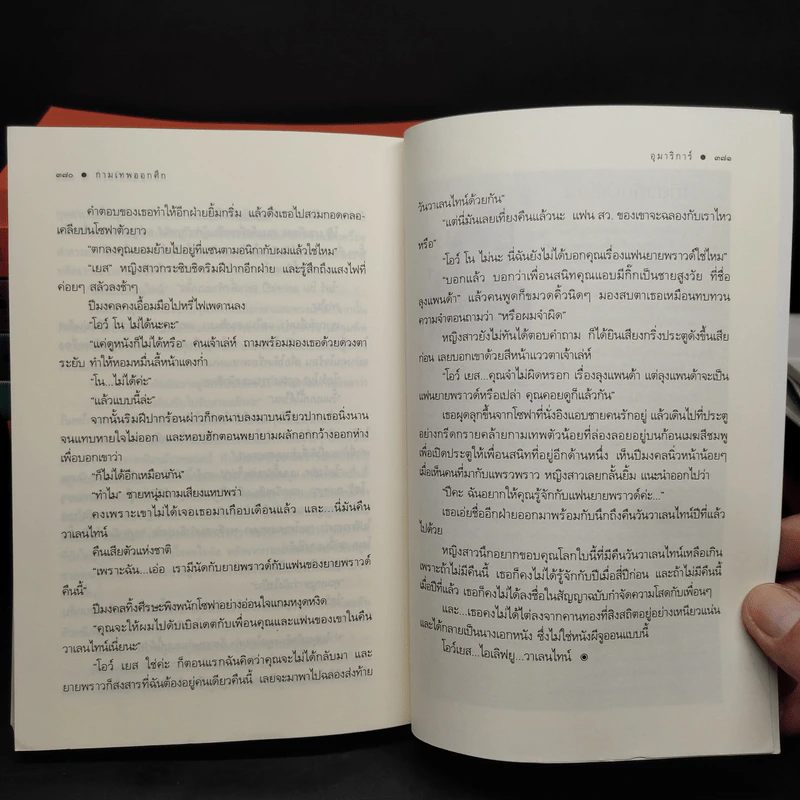 ๓๗๐ ● กามเทพออกศึก
คำตอบของเธอทำให้อีกฝ่ายยิ้มกริ่ม แล้วดึงเธอไปสวมกอดคลอ-
เคลียบนโซฟาตัวยาว
“ตกลงคุณยอมย้ายไปอยู่ที่แซนตามอนิกากับผมแล้วใช่ไหม”
“เยส” หญิงสาวกระซิบชิดริมฝีปากอีกฝ่าย และรู้สึกถึงแสงไฟที่
ค่อยๆ สลัวลงช้าๆ
ปีมงคลคงเอื้อมมือไปหรี่ไฟเพดานลง
“โอว์ โน ไม่ได้นะคะ”
“แค่ดูหนังก็ไม่ได้หรือ” คนเจ้าเล่ห์ ถามพร้อมมองเธอด้วยดวงตา
ระยับ ทำให้หอมหมื่นลี้หน้าแดงก่ำ
“โน...ไม่ได้ค่ะ”
“แล้วแบบนี้ล่ะ”
จากนั้นริมฝีปากร้อนผ่าวก็กดนาบลงมาบนเรียวปากเธอนิ่งนาน
จนแทบหายใจไม่ออก และหอบฮักตอนพยายามผลักอกกว้างออกห่าง
เพื่อบอกเขาว่า
“ก็ไม่ได้อีกเหมือนกัน”
“ทำไม” ชายหนุ่มถามเสียงแหบพร่า
คงเพราะเขาไม่ได้เจอเธอมาเกือบเดือนแล้ว และ...นี่มันคืน
วาเลนไทน์
คืนเสียตัวแห่งชาติ
“เพราะฉัน...เอ่อ เรามีนัดกับยายพราวด์กับแฟนของยายพราวด์
คืนนี้”
ปีมงคลทิ้งศีรษะพิงพนักโซฟาอย่างอ่อนใจแกมหงุดหงิด
“คุณจะให้ผมไปดับเบิลเดตกับเพื่อนคุณและแฟนของเขาในคืน
วาเลนไทน์เนี่ยนะ”
“โอว์ เยส ใช่ค่ะ ก็ตอนแรกฉันคิดว่าคุณจะไม่ได้กลับมา และ
ยายพราวก็สงสารที่ฉันต้องอยู่คนเดียวคืนนี้ เลยจะมาพาไปฉลองส่งท้าย
อุมาริการ์ ● ๓๗๑
วันวาเลนไทน์ด้วยกัน”
“แต่นี่มันเลยเที่ยงคืนแล้วนะ แฟน สว. ของเขาจะฉลองกับเราไหว
หรือ”
“โอว์ โน ไม่นะ นี่ฉันยังไม่ได้บอกคุณเรื่องแฟนยายพราวด์ใช่ไหม”
“บอกแล้ว บอกว่าเพื่อนสนิทคุณแอบมีกิ๊กเป็นชายสูงวัย ที่ชื่อ
ลุงแพนด้า” แล้วคนพูดก็ขมวดคิ้วนิดๆ มองสบตาเธอเหมือนทบทวน
ความจำตอนถามว่า “หรือผมจำผิด”
หญิงสาวยังไม่ทันได้ตอบคำถาม ก็ได้ยินเสียงกริ่งประตูดังขึ้นเสีย
ก่อน เลยบอกเขาด้วยสีหน้าแววตาเจ้าเล่ห์
“โอว์ เยส...คุณจำไม่ผิดหรอก เรื่องลุงแพนด้า แต่ลุงแพนด้าจะเป็น
แฟนยายพราวด์หรือเปล่า คุณคอยดูก็แล้วกัน”
เธอผุดลุกขึ้นจากโซฟาที่นั่งอิงแอบชายคนรักอยู่ แล้วเดินไปที่ประตู
อย่างกรีดกรายคล้ายกามเทพตัวน้อยที่ล่องลอยอยู่บนก้อนเมฆสีชมพู
เพื่อเปิดประตูให้เพื่อนสนิทที่อยู่อีกด้านหนึ่ง เห็นปีมงคลนิ่วหน้าน้อยๆ
เมื่อเห็นคนที่มากับแพรวพราว หญิงสาวเลยกลั้นยิ้ม แนะนำออกไปว่า
“ปีคะ ฉันอยากให้คุณรู้จักกับแฟนยายพราวด์ค่ะ...”
เธอเอ่ยชื่ออีกฝ่ายออกมาพร้อมกับนึกถึงคืนวันวาเลนไทน์ปีที่แล้ว
ไปด้วย
หญิงสาวนึกอยากขอบคุณโลกใบนี้ที่มีคืนวันวาเลนไทน์เหลือเกิน
เพราะถ้าไม่มีคืนนี้ เธอก็คงไม่ได้รู้จักกับปีเมื่อสี่ปีก่อน และถ้าไม่มีคืนนี้
เมื่อปีที่แล้ว เธอก็คงไม่ได้ลงชื่อในสัญญาฉบับกำจัดความโสดกับเพื่อนๆ
และ...เธอคงไม่ได้ไต่ลงจากคานทองที่สิงสถิตอยู่อย่างเหนียวแน่น
และได้กลายเป็นนางเอกหนัง ซึ่งไม่ใช่หนังผีจูออนแบบนี้
โอว์เยส...ไอเลิฟยู...วาเลนไทน์ ◉